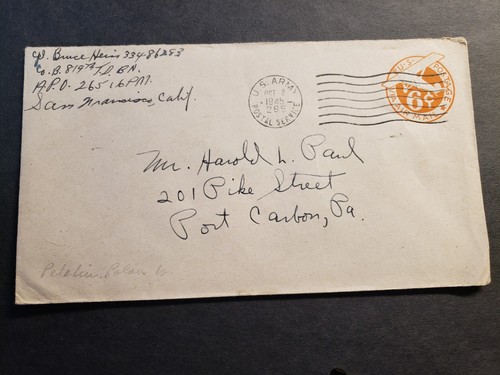 Cpl. Bruce Heim 33486283
Co. B. 819th T.D. BN.
A.P.O. 265 % P.M.
San Francisco, Calif.
U.S. ARMY
1945
POSTAL SERVICE
U.S. POSTAGE
6¢
VIA AIR MAIL
Mr. Harold L. Paul
201 Pike Street
Port Carbon, Pa.
Peleliu, Palau Is